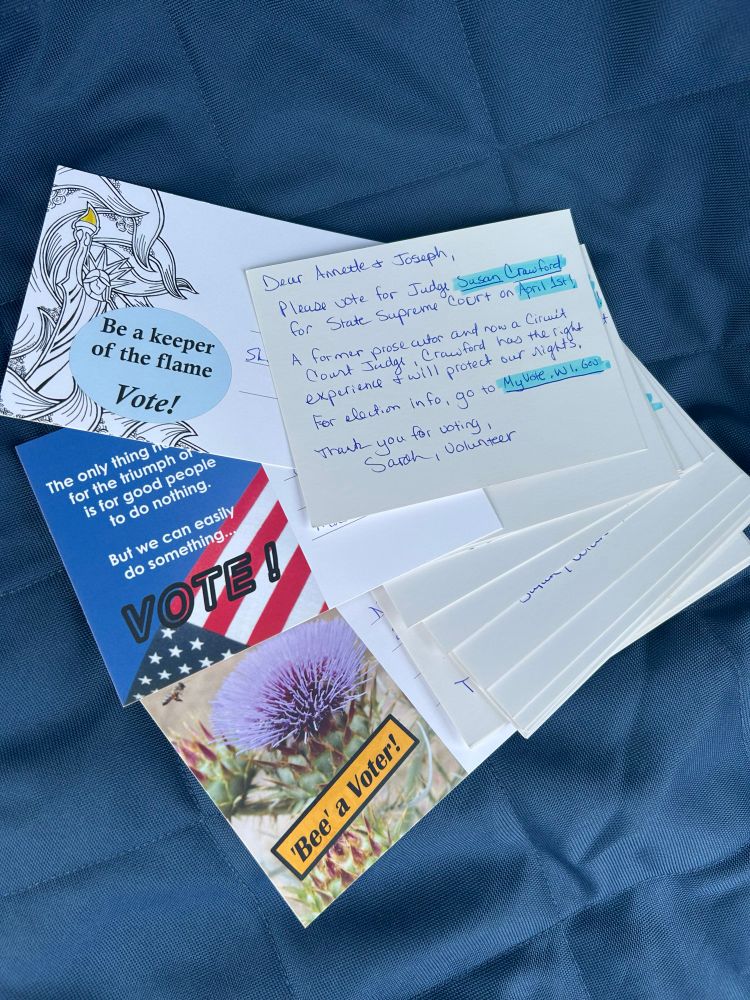 Be a keeper
of the flame
Vote!
Dear Annette & Joseph,
Please vote for Judge Susan Crawford
for State Supreme Court on April 1st!
A former prosecutor and now a Circuit
Court Judge, Crawford has the right
experience & will protect our rights.
For election info, go to MyVote.WI.Gov
Thank you for voting,
Sarah, Volunteer
The only thing
for the triumph of
is for good people
to do nothing.
But we can easily
do something...
VOTE!
'Bee' a Voter!